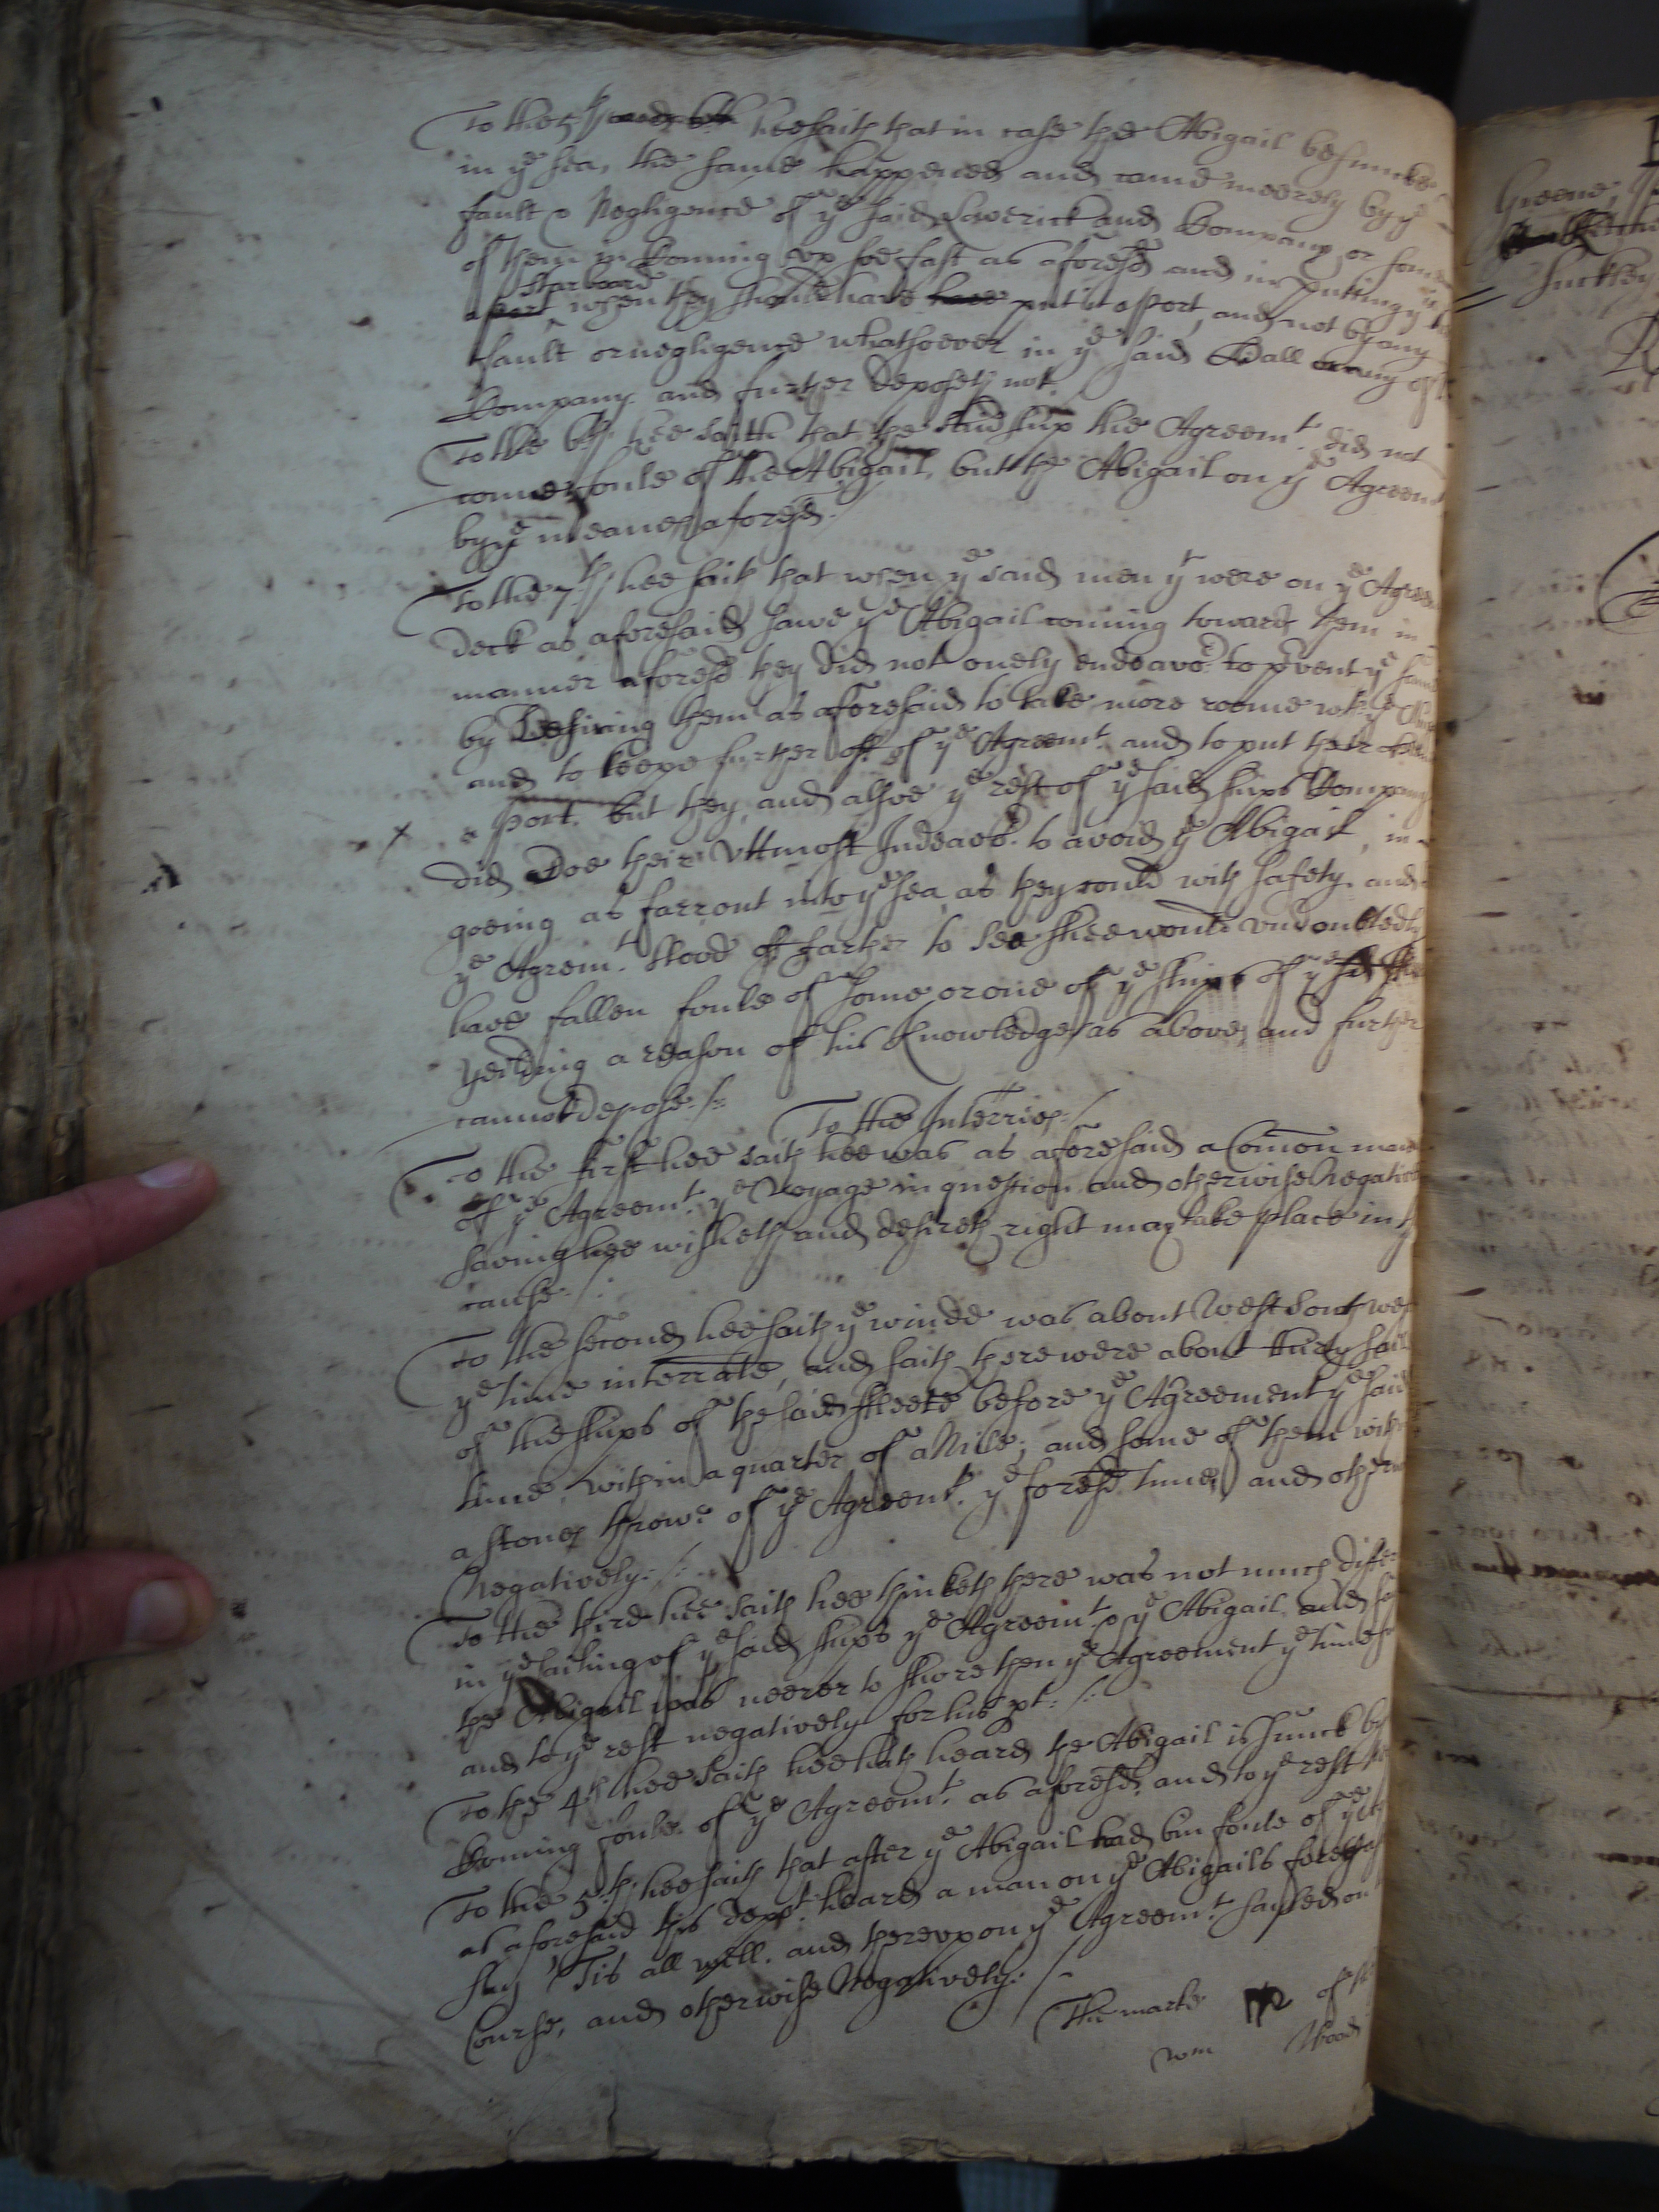 To the 5th hee saith that in case the Abigail be suncke
in ye sea, the same happened and came meerely by ye
fault & Negligence of ye said Laverick and Company or some
of them in Comming up soe fast as aforesd and in putting ye
a port Starboard when they should have have put it a Port, and not by any
fault or negligence whatsoever in ye said Wall or any of
Company. and further deposeth not.
To the 6th hee saith that the said ship the Agreemt. did not
come foule of the Abigail, but the Abigail on ye Agreemt
by ye meanes aforesd./
To the 7th hee saith that when ye said men yt were on ye Agreemt
deck as aforesaid sawe ye Abigail coming towards them in
manner aforesd they did not onely endeavor. to prvent ye same
by Desiring them as aforesaid to take more roome wth ye
and to keepe further off of ye Agreemt. and to put their
a Port. but they, and alsoe ye rest of ye said ships Company
did Doe their Uttmost Indeavor. to avoid ye Abigail, in
goeing as farr out into ye sea as they could with safety. and
ye Agreemt. stood off farther to Sea shee would undoubtedly
have fallen foule of some or one of ye ships of ye sd
yeilding a reason of his knowledge as above, and further
cannot depose./:
To the Interries./
To the first hee saith hee was as aforesaid a Comon man
of ye Agreemt. ye Voyage in question and otherwise Negatively
saving hee wisheth and desireth right may take place in ye
cause./:
To the second hee saith ye winde was about West South west
ye time interrate, and saith there were about thirty saile
of the ships of the said ffleete before ye Agreement ye said
time, within a quarter of a Mile; and some of them with
a stones throwe of ye Agreemt. ye foresd. time, and otherwise
Negatively./:
To the third hee saith hee thinketh there was not much differ
in ye sailing of ye said ships ye Agreemt. & ye Abigail and
the Abigail was neerer to shore then ye Agreement ye time
and to ye rest negatively for his pt./:
To the 4th hee saith hee hath heard the Abigail is sunck by
Comming foule of ye Agreemt. as aforesd. and to ye rest
To the 5th hee saith that after ye Abigail had bin foule of ye
as aforesaid this Dept. heard a man on ye Abigails
say 'Tis all well. and thereupon ye Agreemt. sayled on
Course, and otherwise Negatively./
The marke of
Wm Wood
Greene,